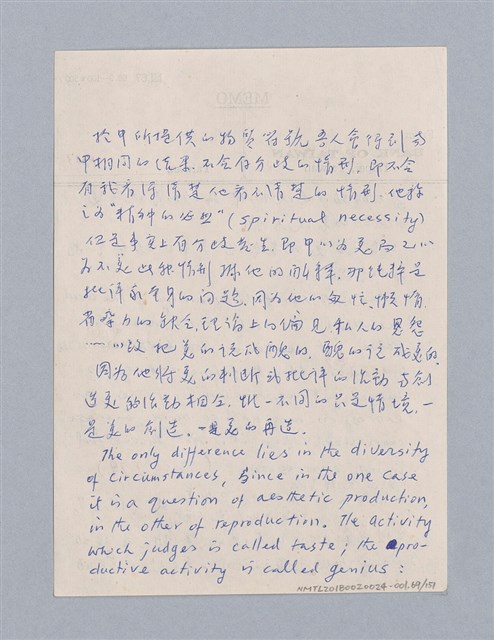 於甲所提供的物質符號吾人會得到與
甲相同的結果不會有分歧的情形. 即不會
有我看得清楚他看不清楚的情形. 他稱
之為"精神的必然" (spiritual necessity)
但是事實上有分歧產生. 即甲以為美而乙以
為不美此種情形據他的解釋. 那純粹是
批評家本身的問題. 因為他的匆忙. 懶惰.
的缺乏. 理論上的偏見私人的恩怨
……以致把美的說成醜的. 醜的說成美的.
因為他將美的判斷或批評的活動與創
造美的活動相合. 唯一不同的只是情境. 一
是美的創造. 一是美的再造.
The only difference lies in the diversity
of circumstances, since in the one case
it is a question of aesthetic production,
in the other of reproduction. The activity
which judges is called taste; the pro-
ductive activity is called genius:
MEMO
NMTL20180020024-001.69/151